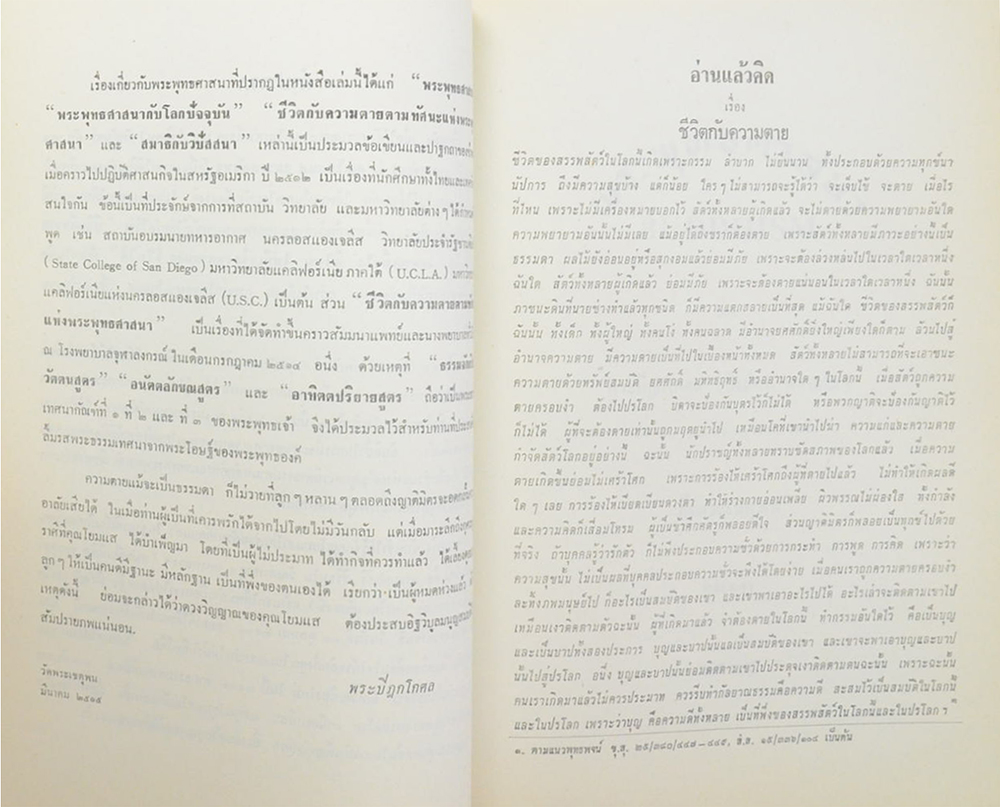 เรื่องเกี่ยวกับพระพุทธศาสนาที่ปรากฏในหนังสือเล่มนี้ได้แก่ “พระพุทธศาสนา
“พระพุทธศาสนากับโลกปัจจุบัน” “ชีวิตกับความตายตามทัศนะแห่งพระพุทธ
ศาสนา” และ “สมาธิกับวิปัสสนา” เหล่านี้เป็นประมวลข้อเขียนและปาฐกถาของ
เมื่อคราวไปปฏิบัติศาสนกิจในสหรัฐอเมริกา ปี ๒๕๑๒ เป็นเรื่องที่นักศึกษาทั้งไทยและ
สนใจกัน ข้อนี้เป็นที่ประจักษ์จากการที่สถาบัน วิทยาลัย และมหาวิทยาลัยต่างๆ ได้
พูด เช่น สถาบันอบรมนายทหารอากาศ นครลอสแองเจลีส วิทยาลัยประจำรัฐ
(State College of San Diego) มหาวิทยาลัยแคลิฟอร์เนีย ภาคใต้ (U.C.L.A.) มหาวิ
แคลิฟอร์เนียแห่งนครลอสแองเจลีส (U.S.C.) เป็นต้น ส่วน “ชีวิตกับความตายตาม
แห่งพระพุทธศาสนา” เป็นเรื่องที่ได้จัดทำขึ้นคราวสัมมนาแพทย์และนางพยาบาล
ณ โรงพยาบาลจุฬาลงกรณ์ ในเดือนกรกฎาคม ๒๕๑๔ อนึ่ง ด้วยเหตุที่ “ธรรมจัก
วัตตนสูตร” “อนัตตลักขณสูตร” และ “อาทิตตปริยายสูตร” ถือว่าเป็น
เทศนากัณฑ์ที่ ๑ ที่ ๒ และ ที่ ๓ ของพระพุทธเจ้า จึงได้ประมวลไว้สำหรับท่านที่ประ
ลิ้มรสพระธรรมเทศนาจากพระโอษฐ์ของพระพุทธองค์
ความตายแม้จะเป็นธรรมดา ก็ไม่วายที่ลูกๆ หลานๆ ตลอดถึงญาติมิตรจะอด
อาลัยเสียได้ ในเมื่อท่านผู้เป็นที่เคารพรักได้จากไปโดยไม่มีวันกลับ แต่เมื่อมาระลึกถึง
ราศีที่คุณโยมแส ได้บำเพ็ญมา โดยที่เป็นผู้ไม่ประมาท ได้ทำกิจที่ควรทำแล้ว ได้เลี้ยงดู
ลูกๆ ให้เป็นคนดีมีฐานะ มีหลักฐาน เป็นที่พึ่งของตนเองได้ เรียกว่า เป็นผู้หมดห่วงแล้ว
เหตุดังนี้ ย่อมจะกล่าวได้ว่าดวงวิญญาณของคุณโยมแส ต้องประสบอิฐวิบูลมนุญ
สัมปรายภพแน่นอน.
พระปิฎกโกศล
วัดพระเชตุพน
มีนาคม ๒๕๑๕
อ่านแล้วคิด
เรื่อง
ชีวิตกับความตาย
ชีวิตของสรรพสัตว์ในโลกนี้เกิดเพราะกรรม ลำบาก ไม่ยืนนาน ทั้งประกอบด้วยความทุกข์นา
นัปการ ถึงมีความสุขบ้าง แต่ก็น้อย ใครๆ ไม่สามารถจะรู้ได้ว่า จะเจ็บไข้ จะตาย เมื่อไร
ที่ไหน เพราะไม่มีเครื่องหมายบอกไว้ สัตว์ทั้งหลายผู้เกิดแล้ว จะไม่ตายด้วยความพยายามอันใด
ความพยายามอันนั้นไม่มีเลย แม้อยู่ได้ถึงชราก็ต้องตาย เพราะสัตว์ทั้งหลายมีภาวะอย่างนี้เป็น
ธรรมดา ผลไม้ยังอ่อนอยู่หรือสุกงอมแล้วย่อมมีภัย เพราะจะต้องล่วงหล่นไปในเวลาใดเวลาหนึ่ง
ฉันใด สัตว์ทั้งหลายผู้เกิดแล้ว ย่อมมีภัย เพราะจะต้องตายแน่นอนในเวลาใดเวลาหนึ่ง ฉันนั้น
ภาชนะดินที่นายช่างทำแล้วทุกชนิด ก็มีความแตกสลายเป็นที่สุด แม้ฉันใด ชีวิตของสรรพสัตว์ก็
ฉันนั้น ทั้งเด็ก ทั้งผู้ใหญ่ ทั้งคนโง่ ทั้งคนฉลาด มีอำนาจยศศักดิ์ยิ่งใหญ่เพียงใดก็ตาม ล้วนไปสู่
อำนาจความตาย มีความตายเป็นที่ไปในเบื้องหน้าทั้งหมด สัตว์ทั้งหลายไม่สามารถที่จะเอาชนะ
ความตายด้วยทรัพย์สมบัติ ยศศักดิ์ มหิทธิฤทธิ์ หรืออำนาจใดๆ ในโลกนี้ เมื่อสัตว์ถูกความ
ตายครอบงำ ต้องไปปรโลก บิดาจะป้องกันบุตรไว้ก็ไม่ได้ หรือพวกญาติจะป้องกันญาติไว้
ก็ไม่ได้ ผู้ที่จะต้องตายเท่านั้นถูกมฤตยูนำไป เหมือนโคที่เขานำไปฆ่า ความแก่และความตาย
กำจัดสัตว์โลกอยู่อย่างนี้ ฉะนั้น นักปราชญ์ทั้งหลายทราบชัดสภาพของโลกแล้ว เมื่อความ
ตายเกิดขึ้นย่อมไม่เศร้าโศก เพราะการร้องไห้เศร้าโศกถึงผู้ที่ตายไปแล้ว ไม่ทำให้เกิดผลดี
ใดๆ เลย การร้องไห้เบียดเบียนดวงตา ทำให้ร่างกายอ่อนเพลีย ผิวพรรณไม่ผ่องใส ทั้งกำลัง
และความคิดก็เสื่อมโทรม ผู้เป็นข้าศึกศัตรูก็พลอยดีใจ ส่วนญาติมิตรก็พลอยเป็นทุกข์ไปด้วย
ที่จริง ถ้าบุคคลรู้ว่ารักตัว ก็ไม่พึงประกอบความชั่วด้วยการกระทำ การพูด การคิด เพราะว่า
ความสุขนั้น ไม่เป็นผลที่บุคคลประกอบความชั่วจะพึงได้โดยง่าย เมื่อคนเราถูกความตายครอบงำ
ละทิ้งภพมนุษย์ไป ก็อะไรเป็นสมบัติของเขา และเขาพาเอาอะไรไปได้ อะไรเล่าจะติดตามเขาไป
เหมือนเงาติดตามตัวฉะนั้น ผู้ที่เกิดมาแล้ว จำต้องตายในโลกนี้ ทำกรรมอันใดไว้ คือเป็นบุญ
และเป็นบาปทั้งสองประการ บุญและบาปนั้นแลเป็นสมบัติของเขา และเขาจะพาเอาบุญและบาป
นั้นไปสู่ปรโลก อนึ่ง บุญและบาปนั้นย่อมติดตามเขาไปประดุจเงาติดตามตนฉะนั้น เพราะฉะนั้น
คนเราเกิดมาแล้วไม่ควรประมาท ควรรีบทำกัลยาณธรรมคือความดี สะสมไว้เป็นสมบัติในโลกนี้
และในปรโลก เพราะว่าบุญ คือความดีทั้งหลาย เป็นที่พึ่งของสรรพสัตว์ในโลกนี้และในปรโลก ฯ ๑
๑. ตามแนวพุทธพจน์ ขุ.สุ. ๒๕/๓๘๐/๔๔๗-๔๔๙, สํ.ส. ๑๕/๓๓๖/๑๓๔ เป็นต้น